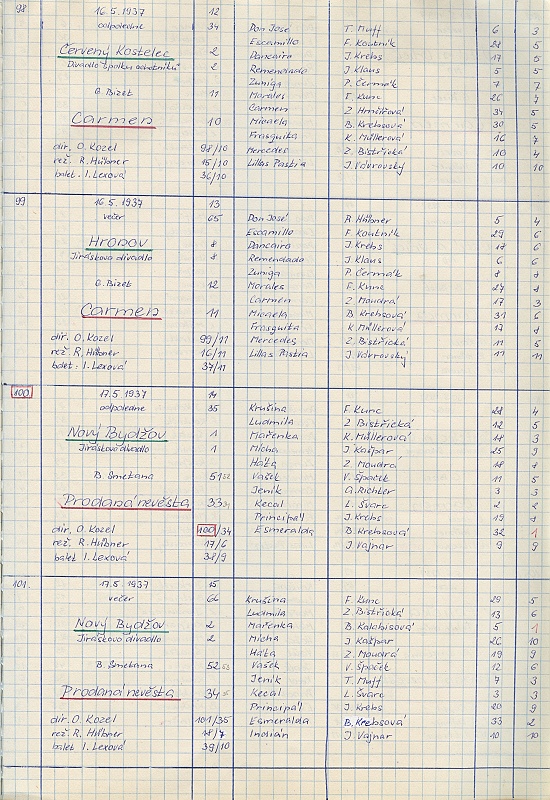 98 16.5.1937 12 Don José T. Muff 6 3
odpoledne 34 Escamillo F. Koutník 28 5
Červený Kostelec 2 Dancairo J. Krebs 17 5
Divadlo spolku ochotníků 2 Remendado J. Klaus 5 5
Zuniga P. Čermák 7 7
G. Bizet 11 Morales F. Kunc 26 7
Carmen Z. Hrnčířová 34 5
Carmen 10 Micaela B. Krehsová 30 5
Frasquita K. Müllerová 16 7
dir. O. Kozel 98/10 Mercedes Z. Bistřická 10 4
rež. R. Hübner 15/10 Lillas Pastia J. Vovrovský 10 10
balet. I. Lexová 36/10
99 16.5.1937 13
večer 65 Don José R. Hübner 5 4
Escamillo F. Koutník 29 6
Hronov 8 Dancairo J. Krebs 18 6
Jiráskovo divadlo 8 Remendado J. Klaus 6 6
Zuniga P. Čermák 8 8
G. Bizet 12 Morales F. Kunc 27 8
Carmen Z. Moudrá 17 3
Carmen 11 Micaela B. Krehsová 31 6
Frasquita K. Müllerová 17 8
dir. O. Kozel 99/11 Mercedes Z. Bistřická 11 5
rež. R. Hübner 16/11 Lillas Pastia J. Vovrovský 11 11
balet. I. Lexová 37/11
100 17.5.1937 14
odpoledne 35 Krušina F. Kunc 28 4
Ludmila Z. Bistřická 12 5
Nový Bydžov 1 Mařenka K. Müllerová 18 3
Jiráskovo divadlo 1 Mícha J. Kašpar 25 9
Háta Z. Moudrá 18 8
B. Smetana 51 52 Vašek V. Špaček 11 5
Jeník G. Richter 3 3
Prodaná nevěsta 33 34 Kecal L. Švarc 2 2
Principál J. Krebs 19 8
dir. O. Kozel 100/34 Esmeralda B. Krehsová 32 1
rež. R. Hübner 17/6 J. Vajnar 9 9
balet I. Lexová 38/9
101. 17.5.1937 15
večer 66 Krušina F. Kunc 29 5
Ludmila Z. Bistřická 13 6
Nový Bydžov 2 Mařenka B. Kalabisová 5 1
Jiráskovo divadlo 2 Mícha J. Kašpar 26 10
Háta Z. Moudrá 19 9
B. Smetana 52 53 Vašek V. Špaček 12 6
Jeník T. Muff 7 3
Prodaná nevěsta 34 Kecal L. Švarc 3 3
Principál J. Krebs 20 9
dir. O. Kozel 101/35 Esmeralda B. Krehsová 33 2
rež. R. Hübner 18/7 Indián J. Vajnar 10 10
balet I. Lexová 39/10